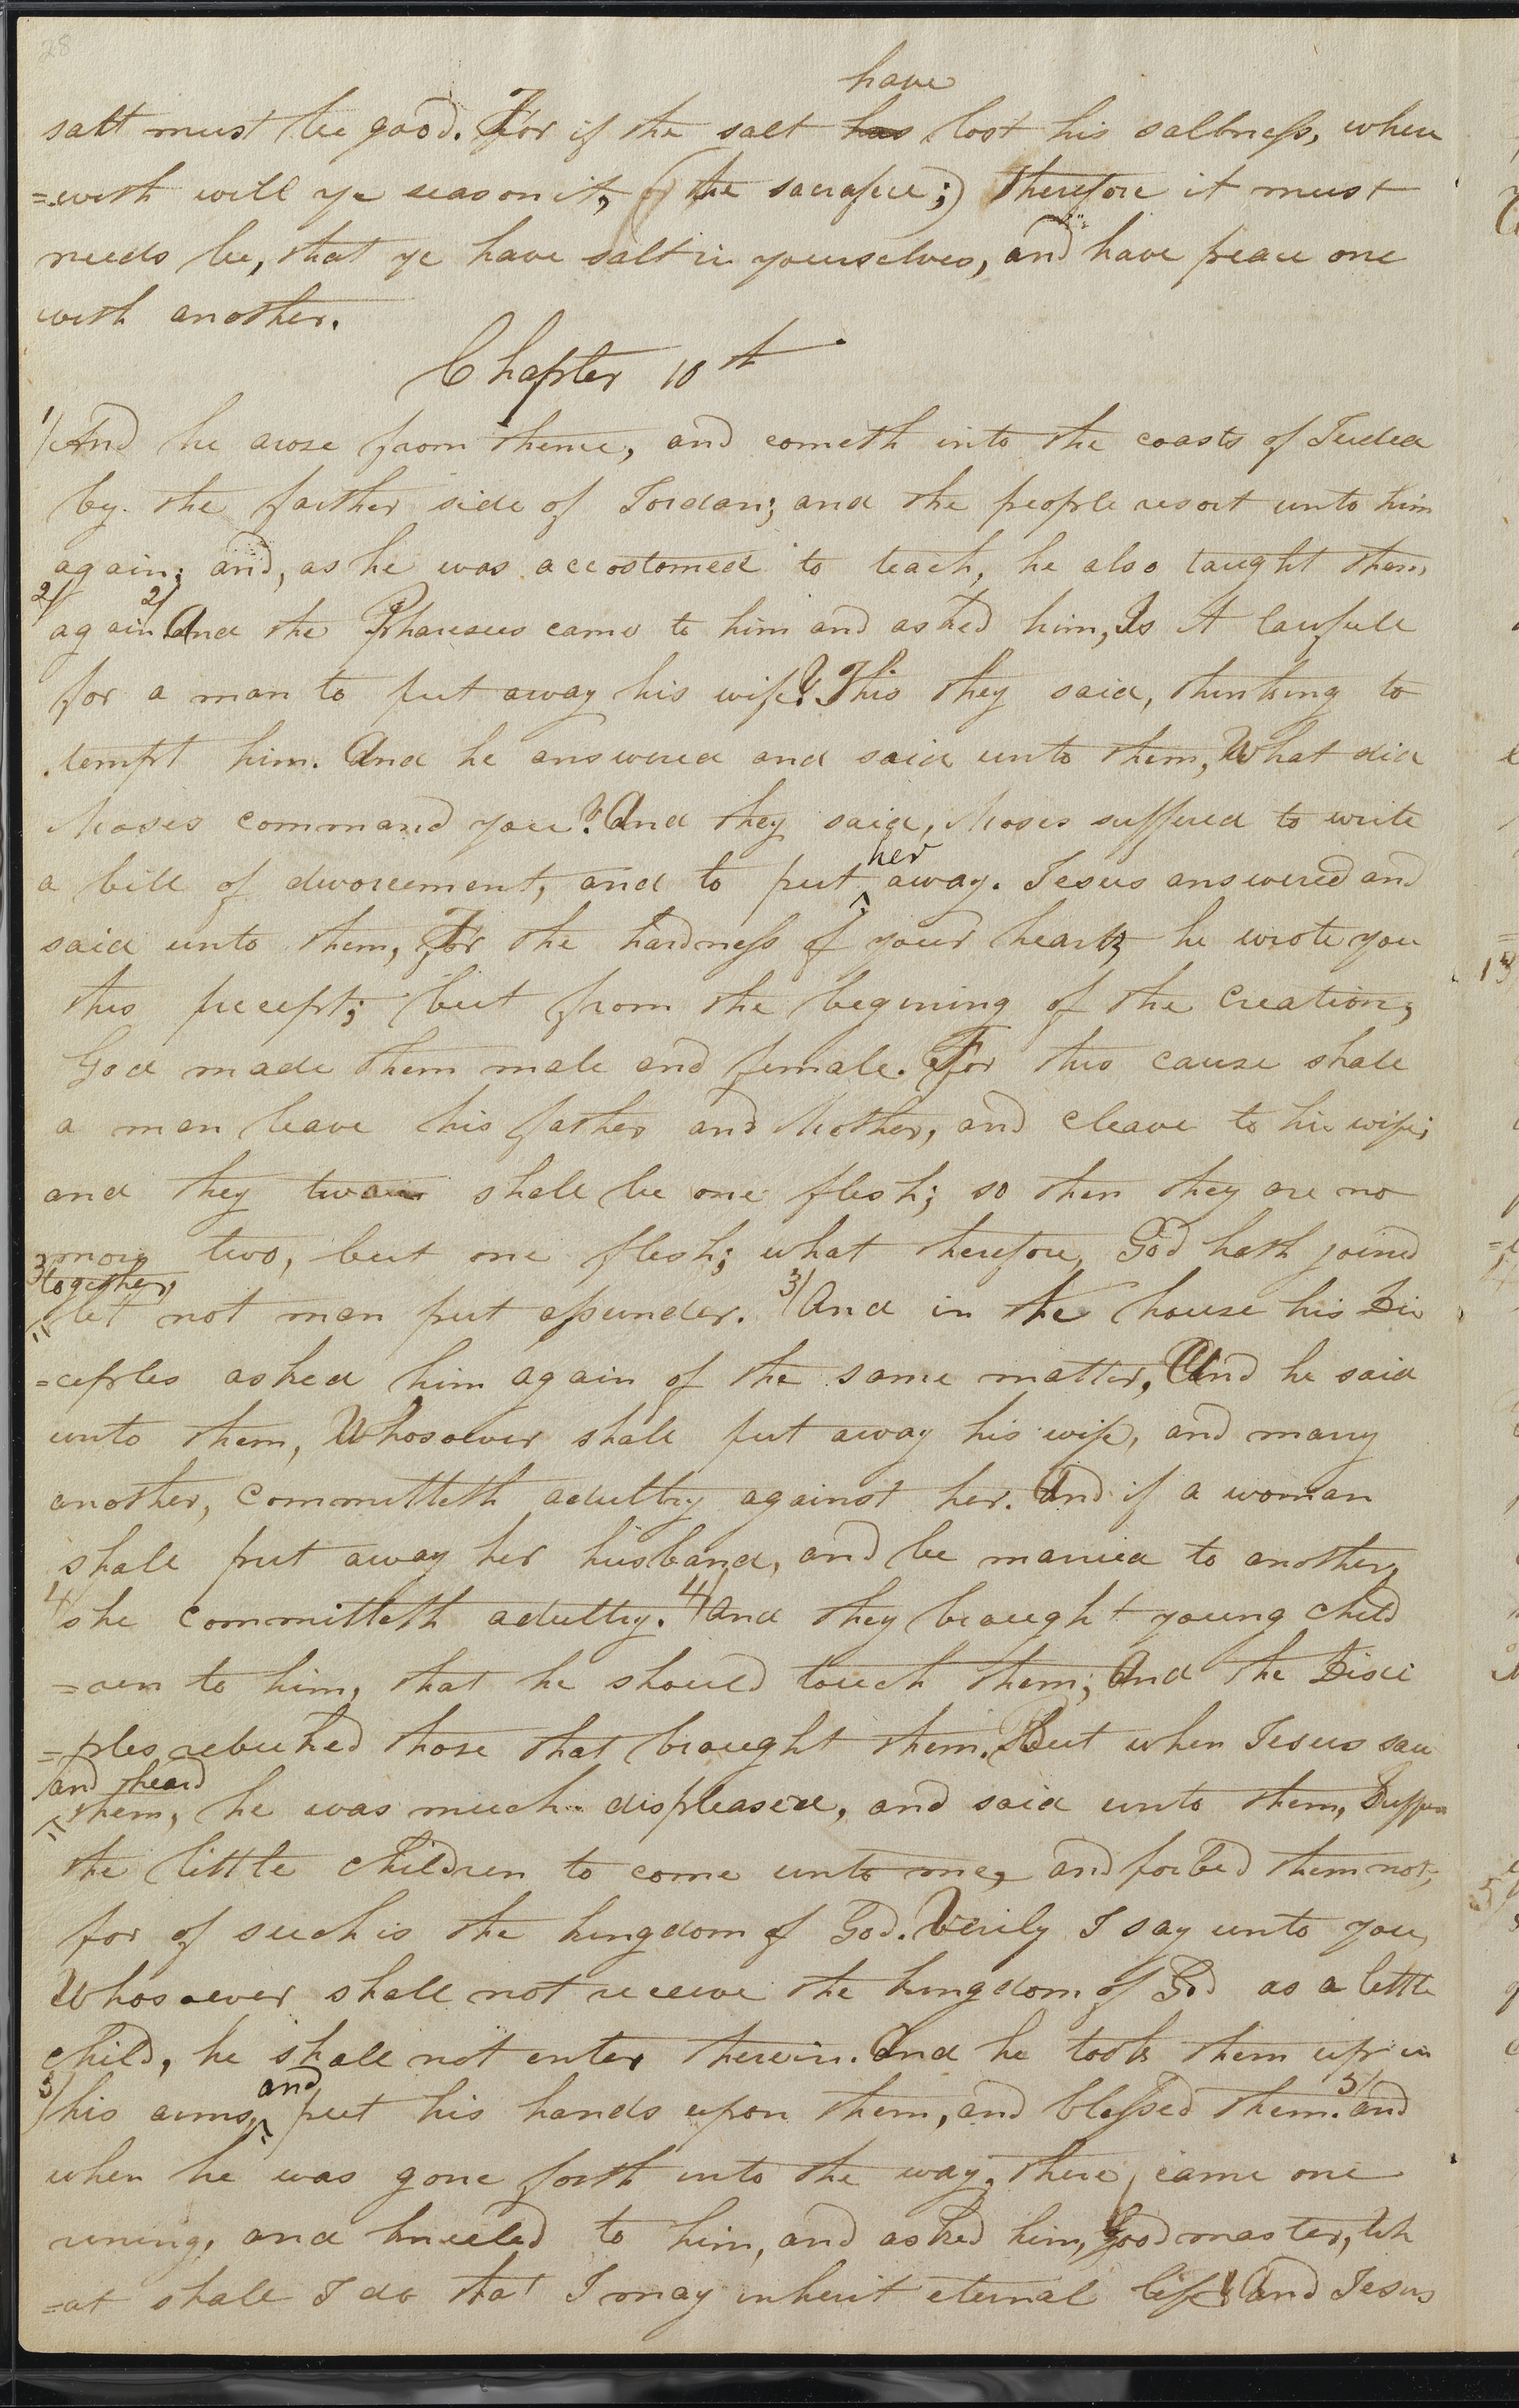 28
have
salt must be good. For if the salt has lost his saltness, where
=with will ye season it, (the sacrafice;) therefore it must
needs be, that ye have salt in yourselves, and have peace one
with another.
Chapter 10th
1/ And he arose from thence, and cometh into the coasts of Judea
by the farther side of Jordan; and the people resort unto him
again; and, as he was accostomed to teach, he also taught them
2/ again. 2/ And the Pharisees came to him and asked him, Is it lawfull
for a man to put away his wife? This they said, thinking to
tempt him. And he answered and said unto them, What did
Moses command you? And they said, Moses suffered to write
her
a bill of divorcement, and to put ^ away. Jesus answered and
said unto them, For the hardness of your hearts he wrote you
this precept; but from the begining of the creation,
God made them male and female. For this cause shall
a man leave his father and Mother, and cleave to his wife;
and they twain shall be one flesh; so then they are no
more two, but one flesh; what therefore, God hath joined
3/ together,
let not man put assunder. 3/ And in the house his Dis
=ciples asked him again of the same matter, And he said
unto them, Whosoever shall put away his wife, and marry
another, committeth adultry against her. And if a woman
shall put away her husband, and be married to another,
4/ she committeth adultry. 4/ And they brought young child
=ren to him, that he should touch them; And the Disci
=ples rebuked those that brought them. But when Jesus saw
and heard
them, he was much displeased, and said unto them, Suffer
the little children to come unto me, and forbid them not;
for of such is the kingdom of God. Verily I say unto you,
Whosoever shall not receive the kingdom of God as a little
child, he shall not enter therein. And he took them up in
and
5/ his arms, ^ put his hands upon them, and blessed them. 5/ and
when he was gone forth into the way, there came one
runing, and kneeled to him, and asked him, Good master, Wh
=at shall I do that I may inherit eternal life? And Jesus